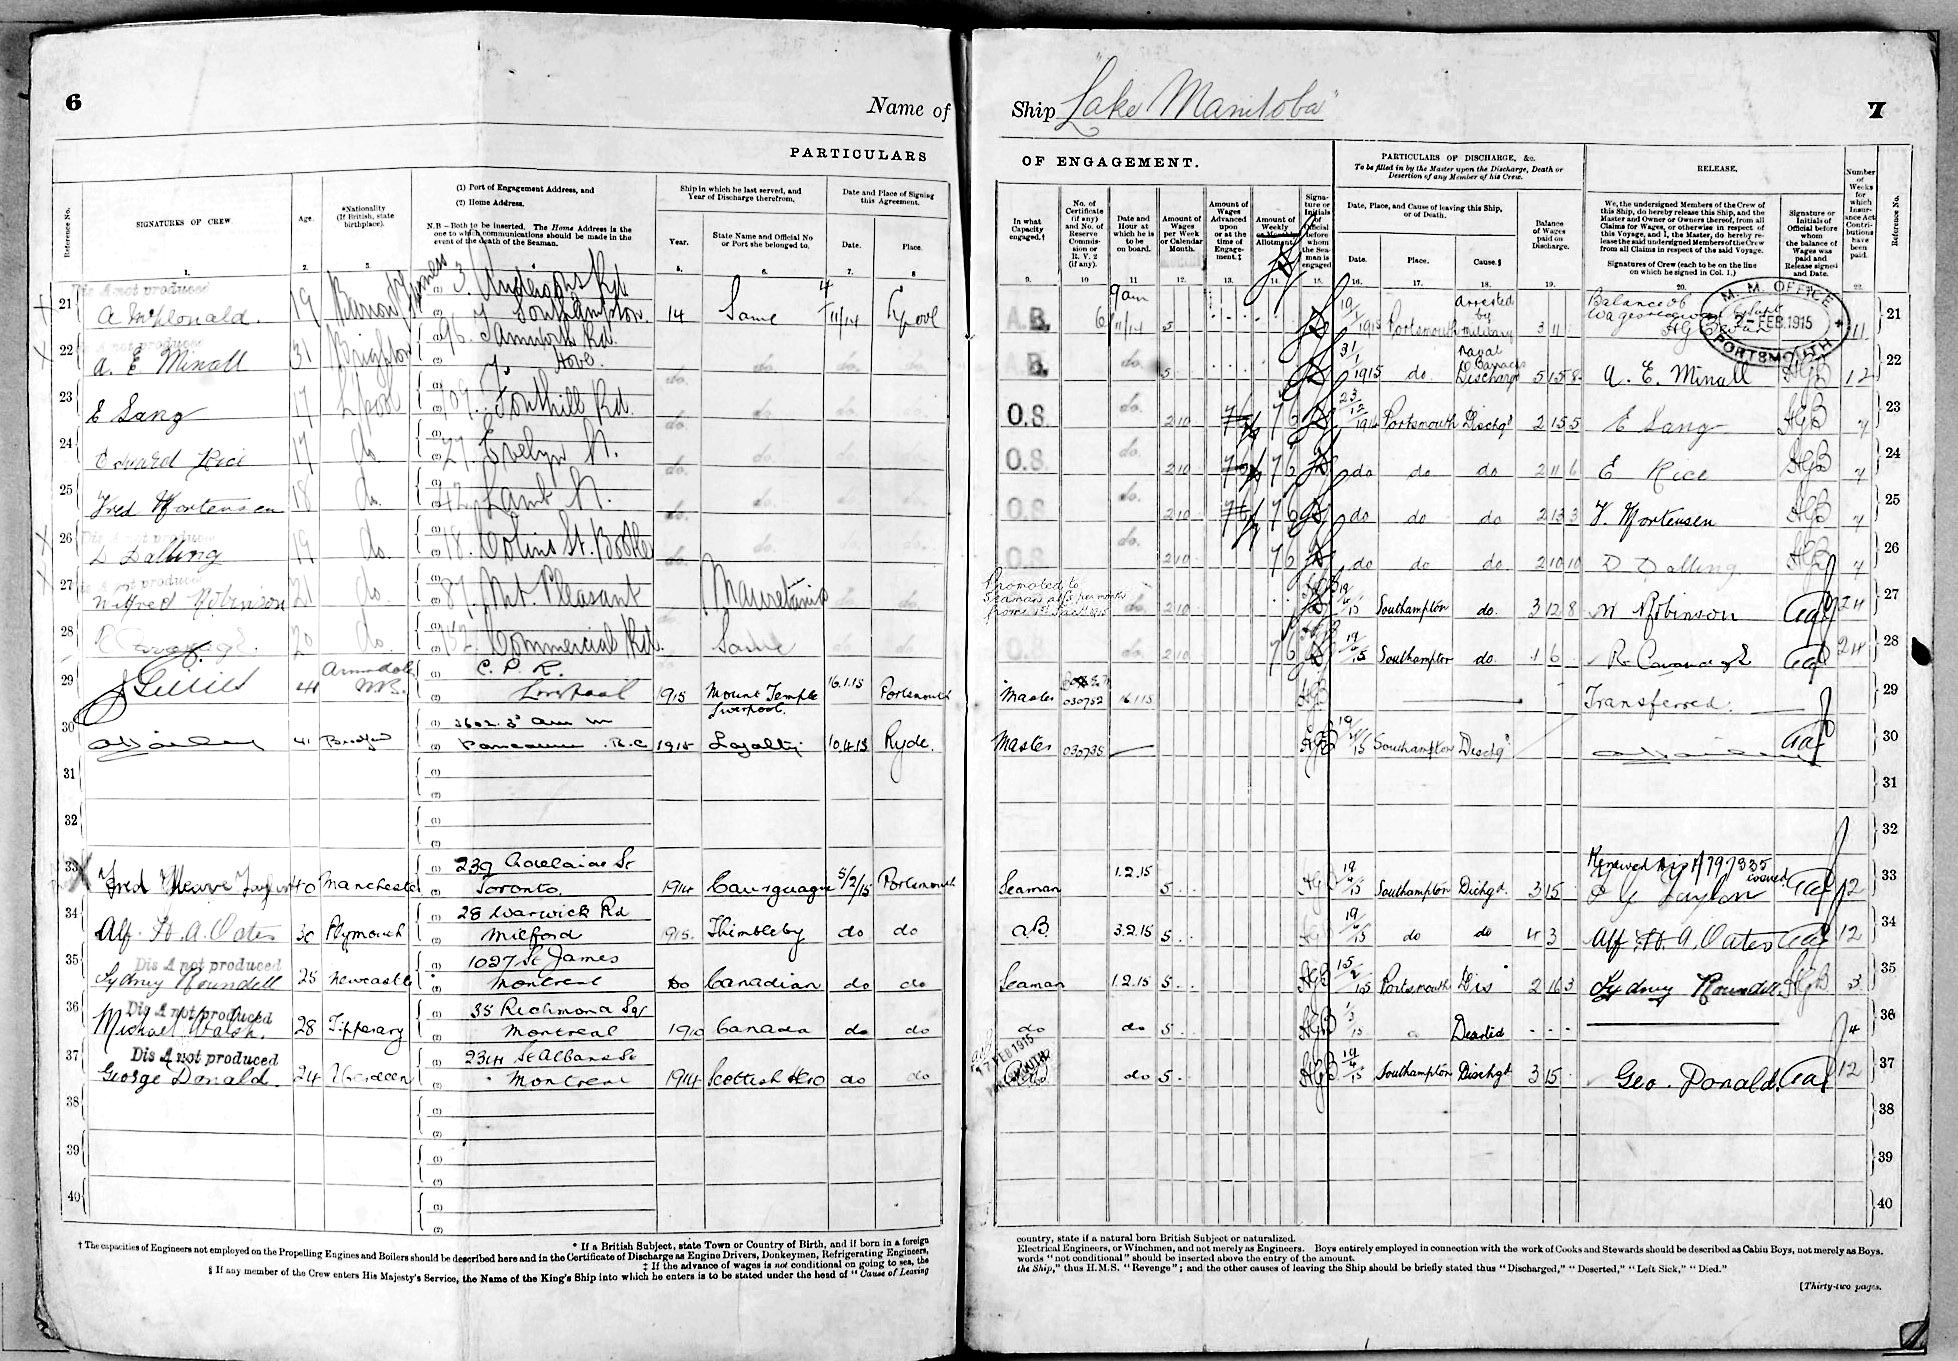 6
Name of
PARTICULARS
Reference No.
SIGNATURES OF CREW.
Age.
*Nationality (If British, state birthplace).
(1) Port of Engagement Address, and
(2) Home Address.
N.B.—Both to be inserted. The Home Address is the one to which communications should be made in the event of the death of the Seaman.
Ship in which he last served, and Year of Discharge therefrom.
Year.
State Name and Official No or Port she belonged to.
Date and Place of Signing this Agreement.
Date.
Place.
1. 2. 3. 4. 5. 6. 7. 8
21 Dis A not produced
A McDonald. 19 Barrow Furness 3, Rd Southampton. 14 Same 4/11/14 Lpool
22 A. E. Minall 31 Brighton 96, Tamworth Rd. Hove. do. do. do. do.
23 E Sang 17 Lpool 109, Fonthill Rd. do. do. do. do.
24 Edward Rice 17 do 27. Evelyn St. do. do. do. do.
25 Fred Mortensen 18 do. 42, Lamb St. do. do. do. do.
26 Dis A not produced
D Dalling 19 do. 18. Colins St. Bootle do. do. do. do.
27 Dis A not produced
Wilfred Robinson 21 do. 87. Mt. Pleasant Mauretania do. do.
28 R Cavanagh 20 do. 152. Commercial Rd. Same do. do.
29 J Gillies 44 Annandale N.B. C. P. R. Liverpool 1915 Mount Temple Liverpool. 16.1.15 Portsmouth
30 41 Bradford Vancouver B.C 1915 Loyalty 10.4.15 Ryde.
31
32
33 Fred Taylor 40 Manchester 239 Adelaide St Toronto. 1914 5/2/15 Portsmouth
34 Alf. H. A. Oates 30 Plymouth 28 Warwick Rd Milford 1915. Thimbleby do do
35 Dis A not produced
Sydney Roundell 25 Newcastle 1027 St James Montreal Do Canadian do do
36 Dis A not produced
Michael Walsh. 28 Tipperary 35 Richmond Sq Montreal 1910 Canada do do
37 Dis A not produced
George Donald. 24 Aberdeen 234 St Albans St Montreal 1914 Scottish Hero do do
38
39
40
* If a British Subject, state Town or Country of Birth, and if born in a foreign
† The capacities of Engineers not employed on the Propelling Engines and Boilers should be described here and in the Certificate of Discharge as Engine Drivers, Donkeymen, Refrigerating Engineers,
‡ If the advance of wages is not conditional on going to sea, the
§ If any member of the Crew enters His Majesty's Service, the Name of the King's Ship into which he enters is to be stated under the head of "Cause of Leaving
Ship "Lake Manitoba"
7
OF ENGAGEMENT.
PARTICULARS OF DISCHARGE, &c.
To be filled in by the Master upon the Discharge, Death or Desertion of any Member of his Crew.
RELEASE.
In what Capacity engaged.†
No. of Certificate (if any) and No. of Reserve Commission or R. V. 2 (if any).
Date and Hour at which he is to be on board.
Amount of Wages per Week or Calendar Month.
Amount of Wages Advanced upon or at the time of Engagement.‡
Amount of Weekly or Monthly Allotment.
Signature or Initials of Official before whom the Seaman is engaged
Date, Place, and Cause of leaving this Ship, or of Death.
Date. Place. Cause.§
Balance of Wages paid on Discharge.
We, the undersigned Members of the Crew of this Ship, do hereby release this Ship, and the Master and Owner or Owners thereof, from all Claims for Wages, or otherwise in respect of this Voyage, and I, the Master, do hereby release the said undersigned Members of the Crew from all Claims in respect of the said Voyage.
Signatures of Crew (each to be on the line on which he signed in Col. 1.)
Signature or Initials of Official before whom the balance of Wages was paid and Release signed and Date.
Number of Weeks for which Insurance Act Contributions have been paid.
Reference No.
9. 10 11 12. 13. 14. 15. 16. 17. 18. 19. 20. 22.
A.B. 9am 6 11/14 5 1915 Portsmouth Arrested by Military 3 11 Balance of Wages 11 21
M. M. OFFICE
2-FEB.1915
PORTSMOUTH
A.B. do. 5 31/1 1915 do. Naval Barracks Discharge 5 15 8 A. E. Minall HGB 12 22
O.S. do. 2 10 7 6 23/12 1914 Portsmouth Dischgd 2 15 5 E Sang HGB 7 23
O.S. do. 2 10 7 6 do do do 2 11 6 E Rice HGB 7 24
O.S. do. 2 10 7 6 do do do 2 13 3 F. Mortensen HGB 7 25
O.S. do. 2 10 7 6 do do do 2 10 10 D Dalling HGB 7 26
Promoted to Seaman at per month from 1st Jan 1915
do. 2 10 19/4/15 Southampton do. 3 12 8 W Robinson 24 27
O.S. do. 2 10 7 6 19/4/15 Southampton do. 1 6 R Cavanagh 24 28
Master 030752 16.1.15 HGB Transferred. 29
Master 030735 HGB 19/4/15 Southampton Dischgd 30
31
32
Seaman 1.2.15 5 HGB 19/4/15 Southampton Dichgd. 3 15 Renewed Dis A 797335 issued 12 33
A.B. 3.2.15 5 19/4/15 do do 4 3 Alf H. A. Oates 12 34
Seaman 1.2.15 5 HGB 15/2/15 Portsmouth Dis 2 16 3 Sydney Roundell HGB 3 35
do do 5 HGB 1/3/15 Deserted 4 36
17 FEB 1915
do 5 HGB 19/4/15 Southampton Dischgd 3 15 Geo. Donald. 12 37
38
39
40
country, state if a natural born British Subject or naturalized.
Electrical Engineers, or Winchmen, and not merely as Engineers. Boys entirely employed in connection with the work of Cooks and Stewards should be described as Cabin Boys, not merely as Boys.
words "not conditional" should be inserted above the entry of the amount.
the Ship," thus H.M.S. "Revenge"; and the other causes of leaving the Ship should be briefly stated thus "Discharged," "Deserted," "Left Sick," "Died."
[Thirty-two pages.